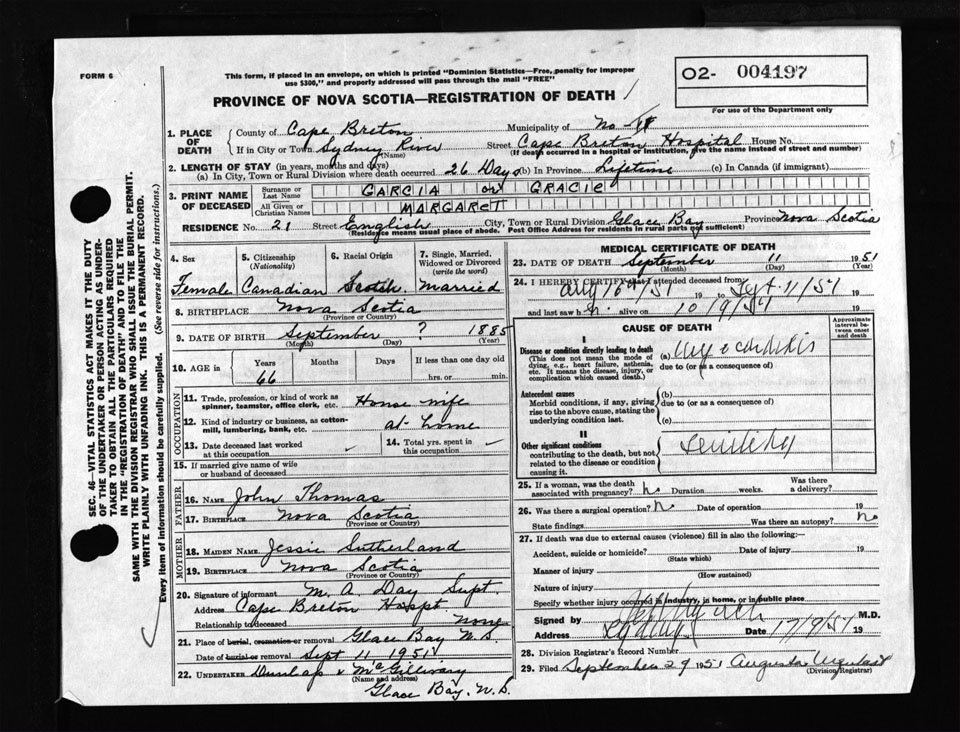 FORM 6
This form, if placed in an envelope, on which is printed "Dominion Statistics—Free, penalty for improper
use $300," and properly addressed will pass through the mail "FREE"
O2- 004197
For use of the Department only
PROVINCE OF NOVA SCOTIA—REGISTRATION OF DEATH
1. PLACE OF DEATH
County of Cape Breton Municipality of No-
If in City or Town Sydney River (Name) Street Cape Breton Hospital House No.
(If death occurred in a hospital or institution, give the name instead of street and number)
2. LENGTH OF STAY (in years, months and days)
(a) In City, Town or Rural Division where death occurred 26 Days (b) In Province Lifetime (c) In Canada (if immigrant)
3. PRINT NAME OF DECEASED
Surname or Last Name GARCIA or GRACIE
All Given or Christian Names MARGARET
RESIDENCE No. 21 Street English City, Town or Rural Division Glace Bay Province Nova Scotia
(Residence means usual place of abode. Post Office Address for residents in rural parts not sufficient)
4. Sex
Female
5. Citizenship (Nationality)
Canadian
6. Racial Origin
Scotch
7. Single, Married, Widowed or Divorced (write the word)
Married
8. BIRTHPLACE Nova Scotia
(Province or Country)
9. DATE OF BIRTH September ? 1885
(Month) (Day) (Year)
10. AGE in Years 66 Months Days If less than one day old
hrs. or min.
OCCUPATION
11. Trade, profession, or kind of work as spinner, teamster, office clerk, etc. House wife
12. Kind of industry or business, as cotton-mill, lumbering, bank, etc. at home
13. Date deceased last worked at this occupation
14. Total yrs. spent in this occupation
15. If married give name of wife or husband of deceased
FATHER
16. NAME John Thomas
17. BIRTHPLACE Nova Scotia
(Province or Country)
MOTHER
18. MAIDEN NAME Jessie Sutherland
19. BIRTHPLACE Nova Scotia
(Province or Country)
20. Signature of informant M. A. Day Supt.
Address Cape Breton Hospt.
Relationship to deceased none
21. Place of burial, cremation or removal Glace Bay N.S.
Date of burial or removal Sept 11 1951
22. UNDERTAKER Dunlap & McGillivray
(Name and address)
Glace Bay, N.S.
MEDICAL CERTIFICATE OF DEATH
23. DATE OF DEATH September 11 1951
(Month) (Day) (Year)
24. I HEREBY CERTIFY that I attended deceased from
Aug 16th/51 19 to Sept. 11/51 19
and last saw h alive on 10/9/51 19
CAUSE OF DEATH
Approximate interval between onset and death
I
Disease or condition directly leading to death
(This does not mean the mode of dying, e.g., heart failure, asthenia, etc. It means the disease, injury, or complication which caused death.)
(a) Myocarditis
due to (or as a consequence of)
Antecedent causes
Morbid conditions, if any, giving rise to the above cause, stating the underlying condition last.
(b)
due to (or as a consequence of)
(c)
II
Other significant conditions contributing to the death, but not related to the disease or condition causing it.
Senility
25. If a woman, was the death associated with pregnancy? No Duration weeks. Was there a delivery?
26. Was there a surgical operation? N Date of operation 19
State findings Was there an autopsy? No
27. If death was due to external causes (violence) fill in also the following:—
Accident, suicide or homicide? Date of injury 19
(State which)
Manner of injury
(How sustained)
Nature of injury
Specify whether injury occurred in industry, in home, or in public place
Signed by M.D.
Address Date 17/9/51 19
28. Division Registrar's Record Number
29. Filed September 29 1951 Augusta
(Division Registrar)
SEC. 46—VITAL STATISTICS ACT MAKES IT THE DUTY
OF THE UNDERTAKER OR PERSON ACTING AS UNDER-
TAKER TO OBTAIN ALL THE PARTICULARS REQUIRED
IN THE "REGISTRATION OF DEATH" AND TO FILE THE
SAME WITH THE DIVISION REGISTRAR WHO SHALL ISSUE THE BURIAL PERMIT.
WRITE PLAINLY WITH UNFADING INK. THIS IS A PERMANENT RECORD.
Every item of information should be carefully supplied. (See reverse side for instructions.)